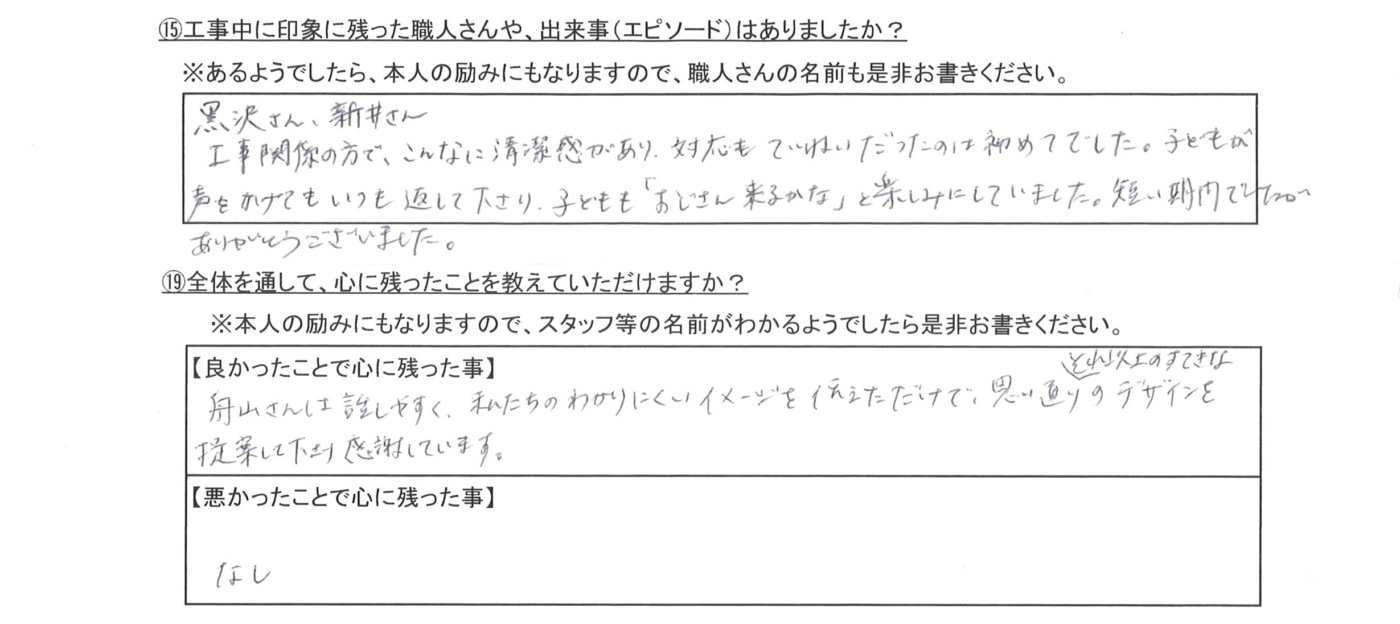 ⑮工事中に印象に残った職人さんや、出来事（エピソード）はありましたか？
※あるようでしたら、本人の励みにもなりますので、職人さんの名前も是非お書きください。
黒沢さん、新井さん
工事関係の方で、こんなに清潔感があり、対応もていねいだったのは初めてでした。子どもが
声をかけてもいつも返して下さり、子どもも「おじさん来るかな」と楽しみにしていました。短い期間でしたが
ありがとうございました。
⑲全体を通して、心に残ったことを教えていただけますか？
※本人の励みにもなりますので、スタッフ等の名前がわかるようでしたら是非お書きください。
【良かったことで心に残った事】
それ以上のすてきな
舟山さんは話しやすく、私たちのわかりにくいイメージを伝えただけで、思い通りのデザインを
提案して下さり感謝しています。
【悪かったことで心に残った事】
なし